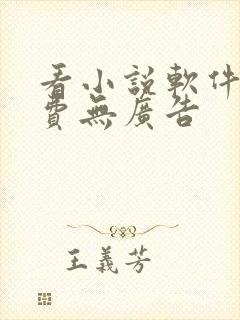 看小説軟件
費無廣告
王義芳